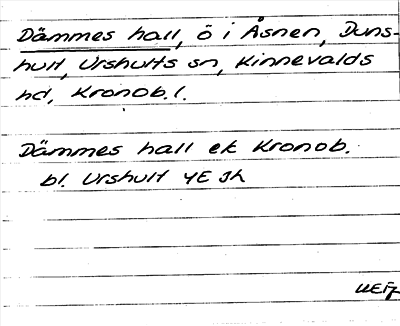 Dämmes hall, ö i Åsnen, Duns-
hult, Urshults sn, Kinnevalds
hd, Kronob. l.
Dämmes hall ek Kronob.
bl. Urshult 4E